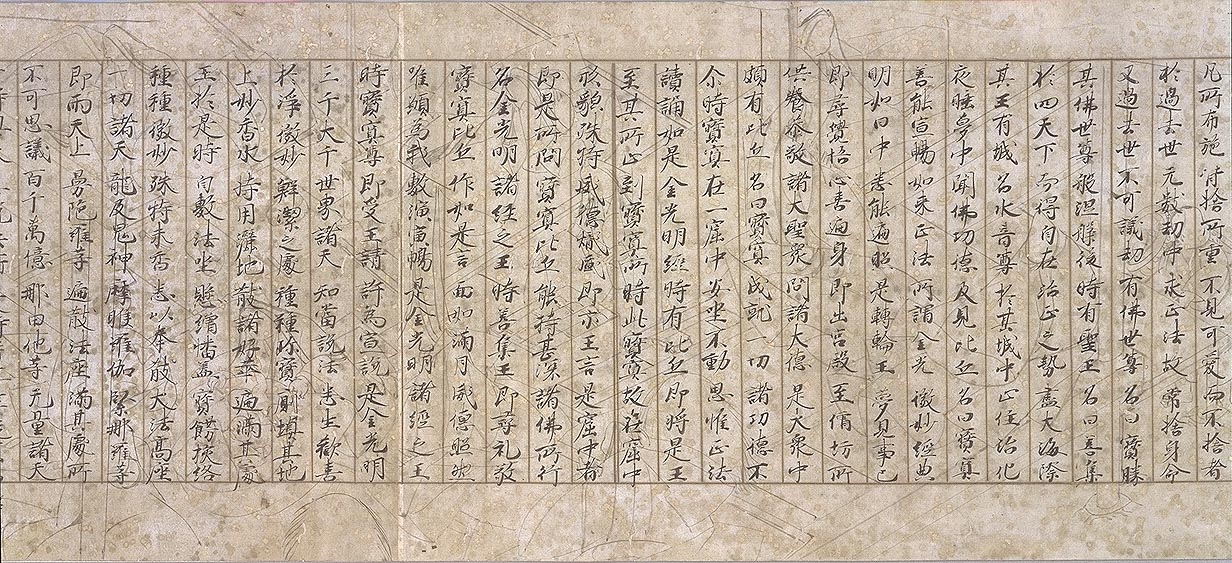 凡所布施 財捨所重 不見可愛 而不捨者
於過去世 无數劫中 求正法故 常捨身命
又過去世 不可議劫 有佛世尊 名曰寶勝
其佛世尊 般涅槃後 時有聖王 名曰善集
於四天下 而得自在 治正之勢 盡大海際
其王有城 名水音尊 於其城中 止住治化
夜睡夢中 聞佛功德 及見比丘 名曰寶冥
善能宣暢 如來正法 所謂金光 微妙經典
明如日中 悉能遍照 是轉輪王 夢見事已
即尋覺悟 心喜遍身 即出宮殿 至僧坊所
供養恭敬 諸大聖衆 問諸大德 是大衆中
頗有比丘 名曰寶冥 成就一切 諸功德不
尒時寶冥 在一窟中 安坐不動 思惟正法
讀誦如是 金光明經 時有比丘 即將是王
至其所止 到寶冥所 時此寶冥 故在窟中
形貌殊特 威德熾盛 即示王言 是窟中者
即是所問 寶冥比丘 能持甚深 諸佛所行
名金光明 諸經之王 時善集王 即尋礼敬
寶冥比丘 作如是言 面如滿月 威德照然
唯願為我 敷演宣暢 是金光明 諸經之王
時寶冥尊 即受王請 許為宣說 是金光明
三千大千 世界諸天 知當說法 悉生歡喜
於淨微妙 鮮潔之處 種種珍寶 廁填其地
上妙香水 持用灑地 散諸好華 遍滿其處
王於是時 自敷法坐 懸繒幡蓋 寶飾挍絡
種種微妙 殊特末香 悉以奉散 大法高座
一切諸天 龍及鬼神 摩睺羅伽 緊那羅等
即雨天上 曼陁羅華 遍散法座 滿其處所
不可思議 百千萬億 那由他等 无量諸天